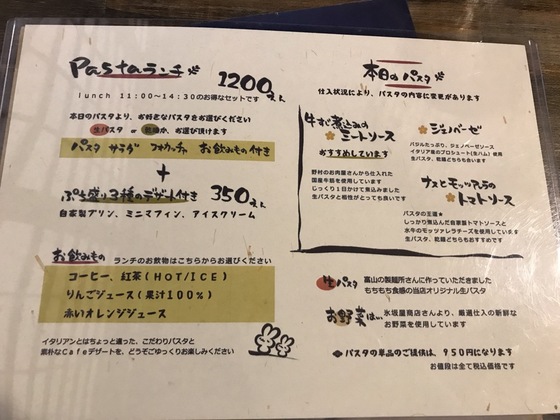 Pastaランチ 1200えん
lunch 11:00〜14:30のお得なセットです
本日のパスタより、お好きなパスタをお選びください
生パスタ or 乾麺か、お選び頂けます
パスタ サラダ フォカッチャ お飲みもの付き
+
ぷち盛り3種のデザート付き 350えん
自家製プリン、ミニマフィン、アイスクリーム
お飲みもの ランチのお飲物はこちらからお選びください
コーヒー、紅茶(HOT/ICE)
りんごジュース(果汁100%)
赤いオレンジジュース
イタリアンとはちょっと違った、こだわりパスタと
素朴なCafeデザートを、どうぞごゆっくりお楽しみください
本日のパスタ
仕入状況により、パスタの内容に変更があります
牛すじ煮込みの
ミートソース
おすすめしています
野村のお肉屋さんから仕入れた
国産牛筋を使用しています
じっくり1日かけて煮込みました
生パスタと相性がとっても良いです
ジェノベーゼ
バジルたっぷり、ジェノベーゼソース
イタリア産のプロシュート(生ハム)使用
生パスタ、乾麺どちらも合います
ナスとモッツァレラの
トマトソース
パスタの王道★
しっかり煮込んだ自家製トマトソースと
水牛のモッツァレラチーズを使用しています
生パスタ、乾麺どちらもおすすめです
生パスタ 富山の製麺所さんに作っていただきました
もちもち食感の当店オリジナル生パスタ
お野菜は、 氷坂屋商店さんより、厳選仕入の新鮮な
お野菜を使用しています
パスタの単品のご提供は、950円になります
お値段は全て税込価格です